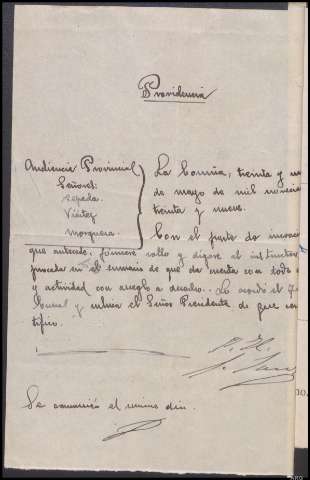 Providencia
Audiencia Provincial
Señores:
Cepeda.
Vieitez
Mosquera.
La Coruña, treinta y un
de mayo de mil novecien
treinta y nueve.
Con el parte de incoaci
que antecede, fórmese rollo y dígase al instructor
proceda en el sumario de que da cuenta con todo
y actividad con arreglo a derecho. Lo acordó el Tri
bunal y rubrica el Señor Presidente de que cer
tifico.
Se comunicó el mismo día.